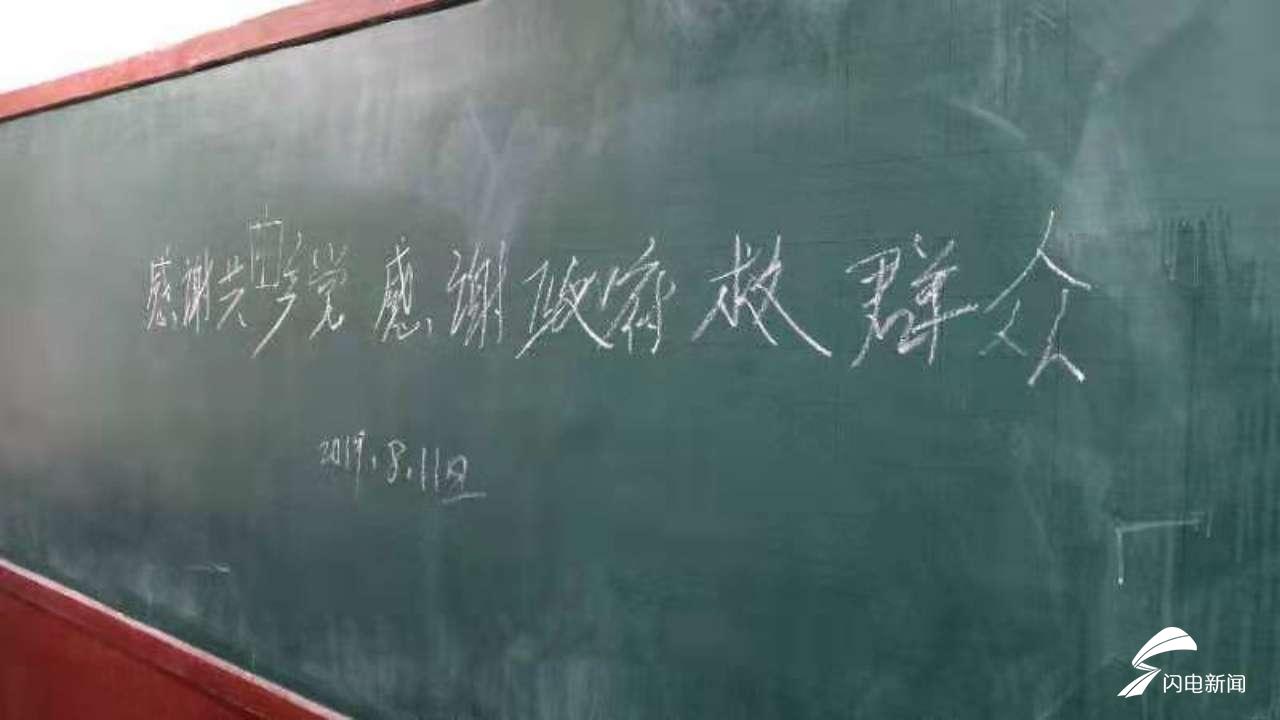 感谢共产党感谢政府救群众
2019.8.11日
闪电新闻